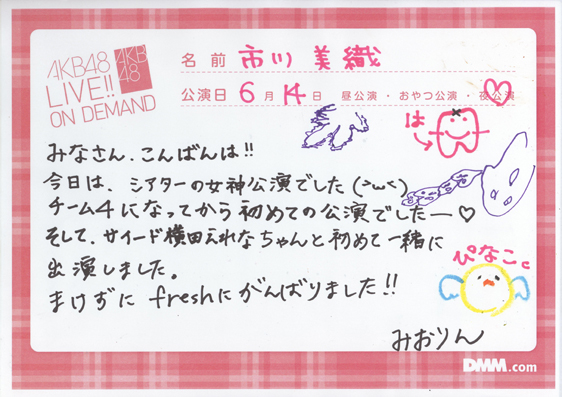 AKB48
LIVE!!
ON DEMAND
AKB
48
名前 市川 美織
公演日 6月 14日 昼公演・おやつ公演・夜公演
は
みなさん、こんばんは!!
今日は、シアターの女神公演でした(>ω<)
チーム4になってから初めての公演でしたー♡
そして、サイード横田えれなちゃんと初めて一緒に
出演しました。
まけずに freshにがんばりました!!
ぴなこ。
みおりん
DMM.com